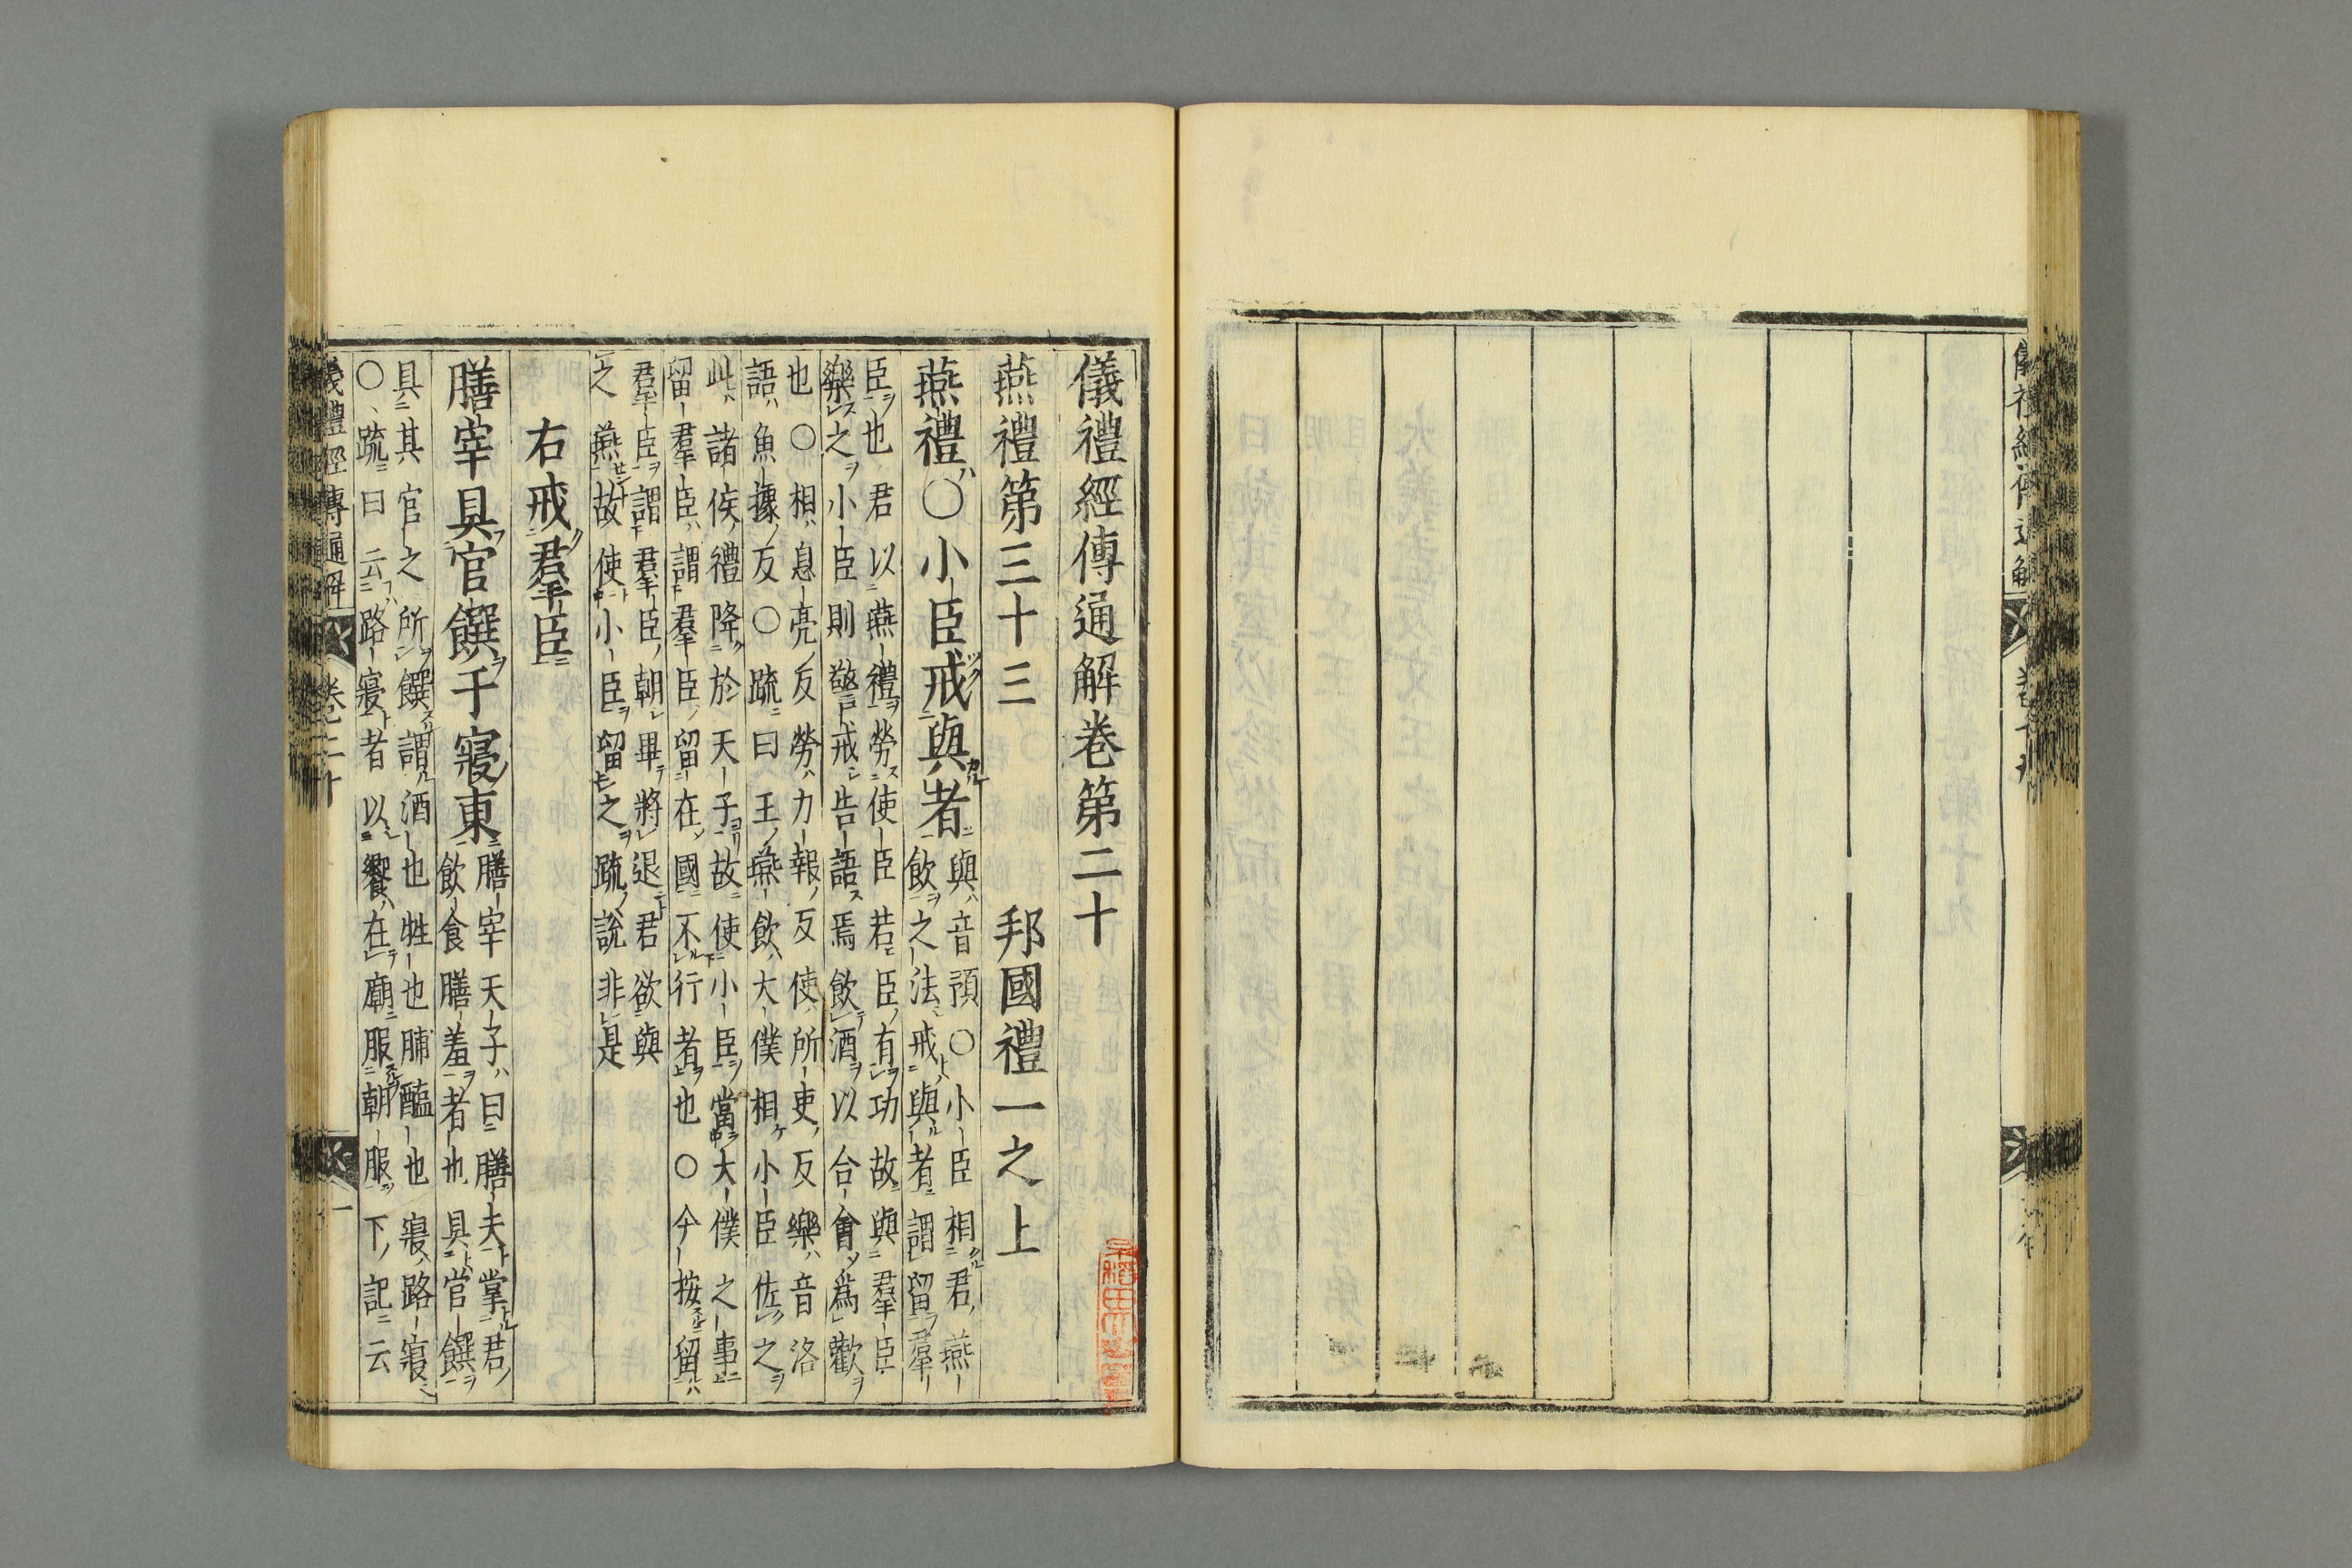 儀禮經傳通解卷第二十
燕禮第三十三　邦國禮一之上
燕禮○小臣戒與者
與音預○小臣相君燕
飲之法戒與者謂留羣
臣也君以燕禮勞使臣若臣有功故與羣臣
樂之小臣則警戒告語焉飲酒以合會爲歡
也○相息亮反勞力報反使所吏反樂音洛
語魚據反○疏曰王燕飲大僕相小臣佐之
此諸侯禮降於天子故使小臣當大僕之事
留羣臣謂羣臣留在國不行者也○今按留
羣臣謂羣臣朝畢將退君欲與
之燕故使小臣留之疏說非是
右戒羣臣
膳宰具官饌于寢東
膳宰天子曰膳夫掌君
飲食膳羞者也具官饌
具其官之所饌謂酒也牲也脯醢也寢路寢
○疏曰云路寢者以饗在廟服朝服下記云
儀禮經傳通解　卷之二十　一